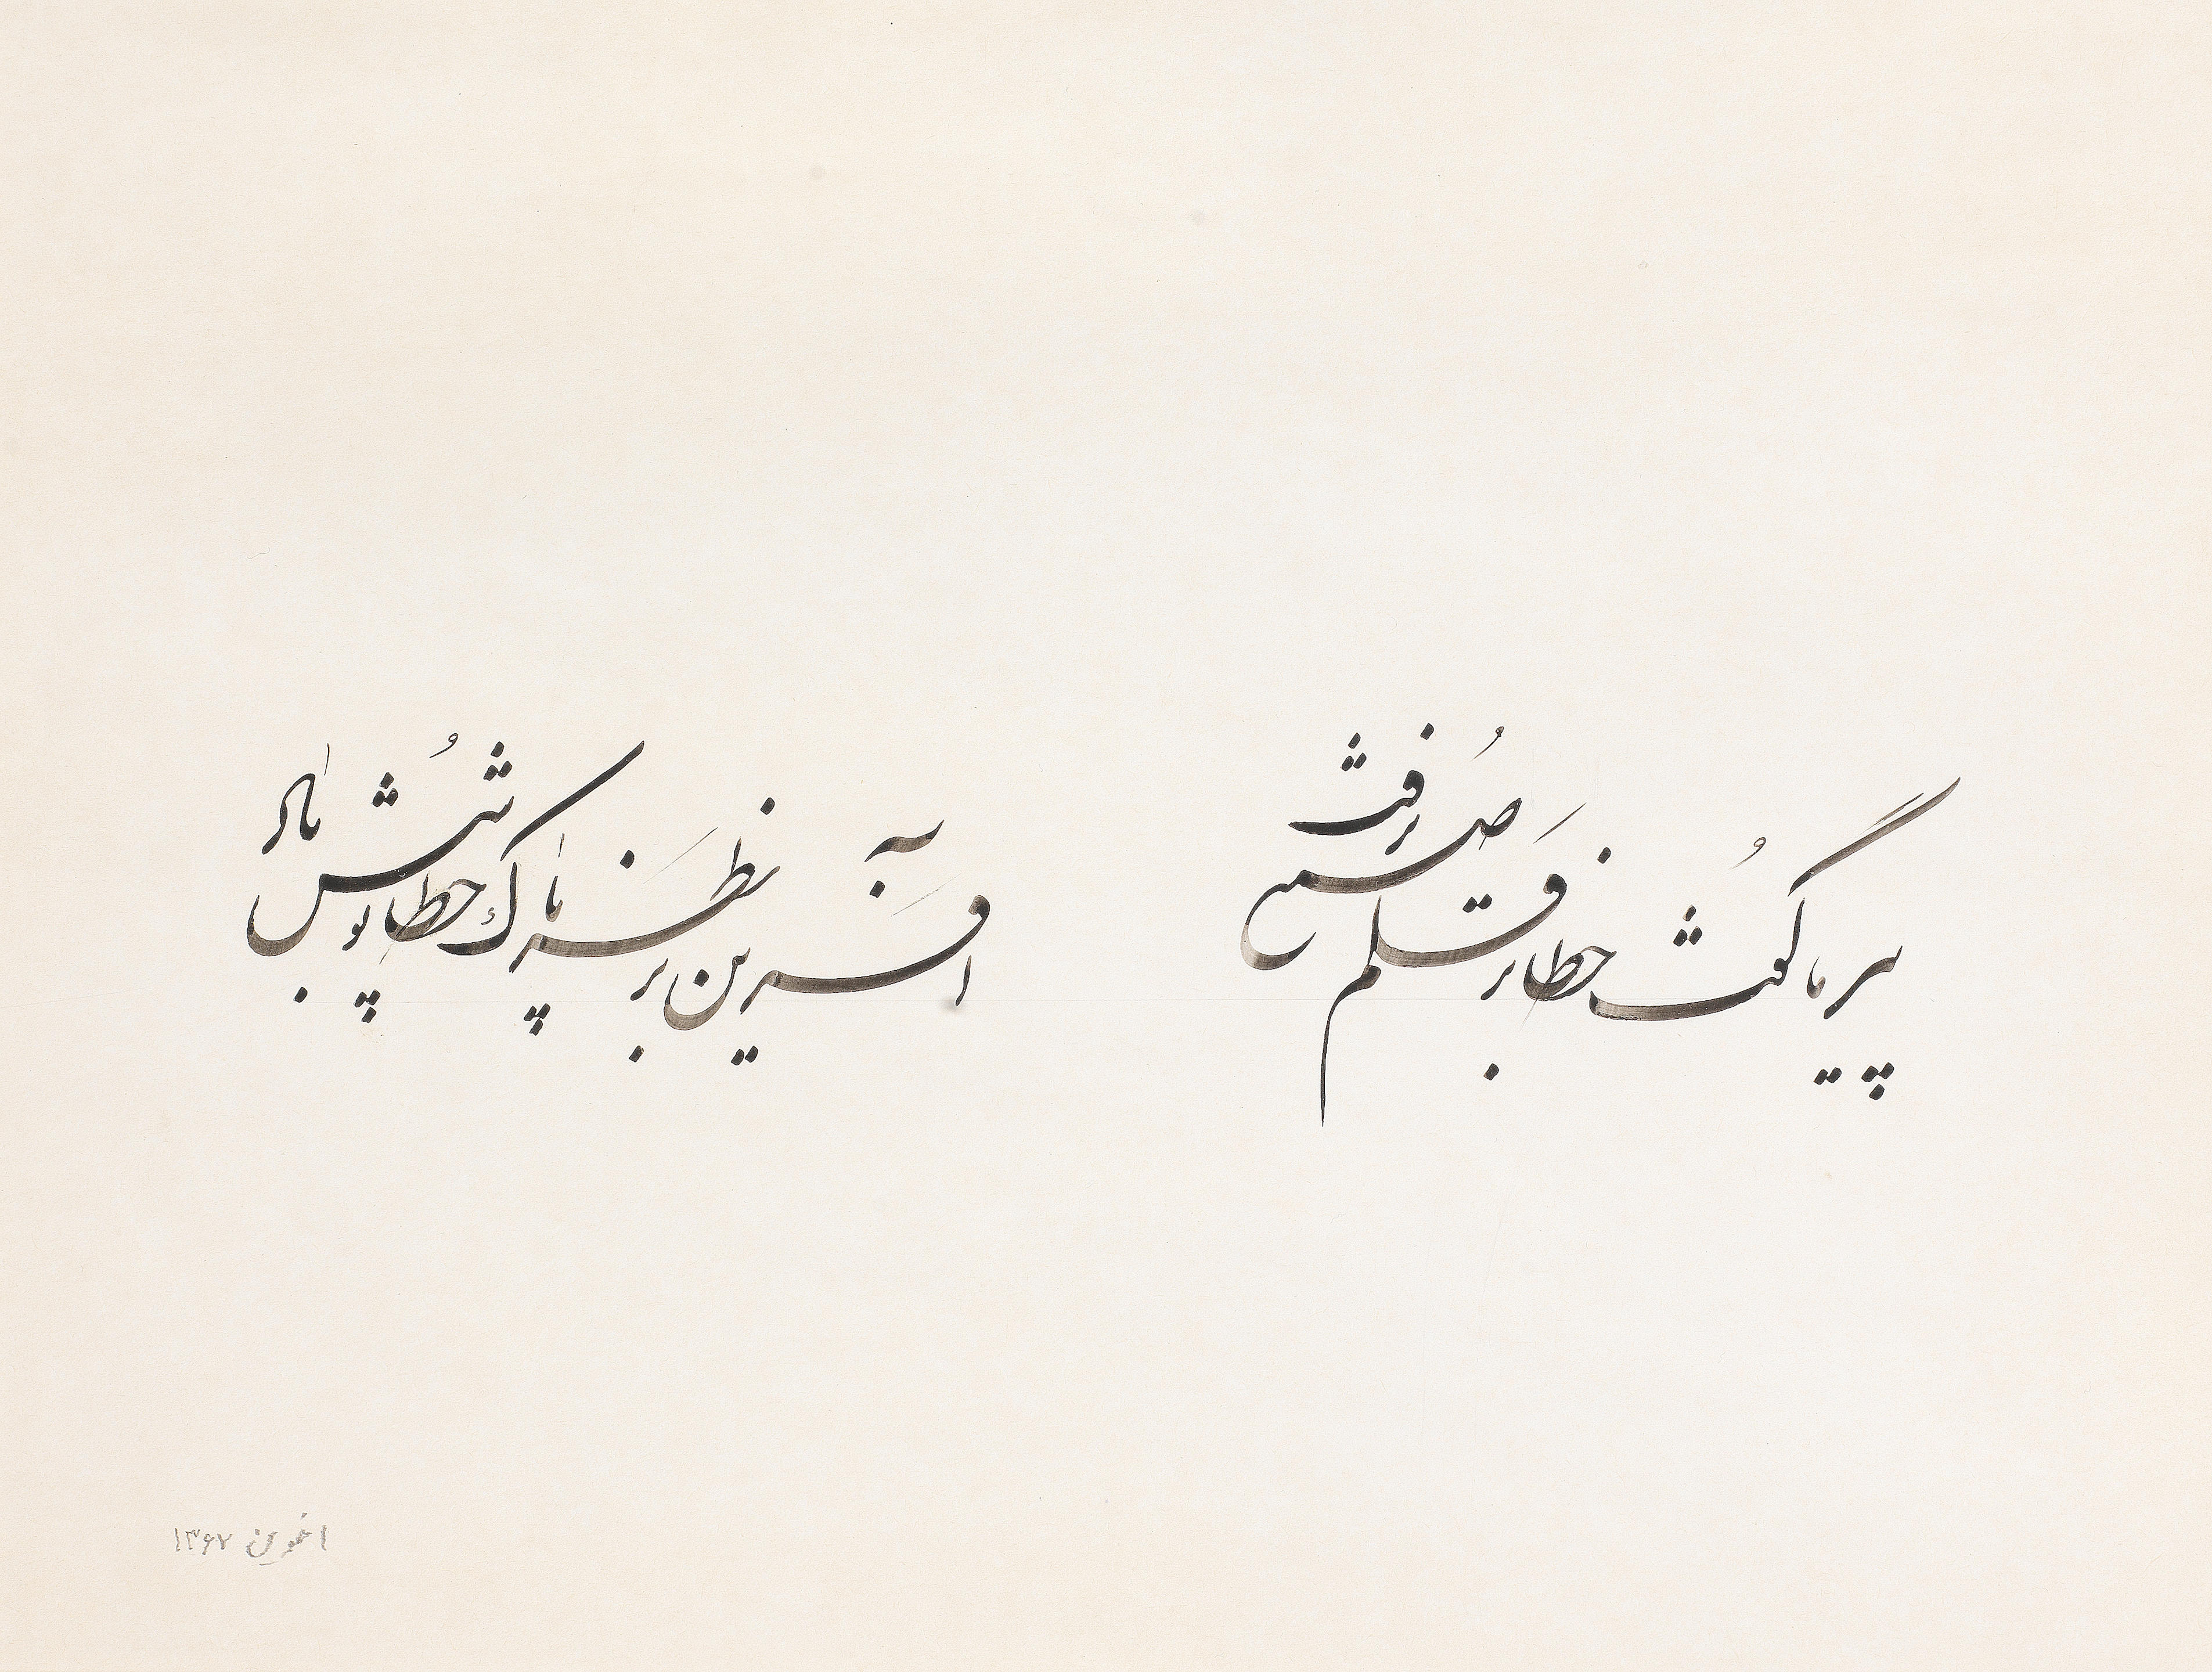 پیر ما گفت خطا بر قلم صنع نرفت
آفرین بر نظر پاک خطا پوشش باد
اخوین ۱۳۶۷